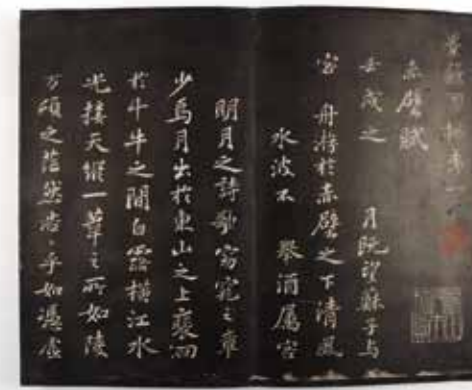 赤壁賦
壬戌之 月既望蘇子与
客 舟游於赤壁之下清風
水波不 舉酒屬客
明月之詩歌窈窕之章
少焉月出於東山之上裵洄
於斗牛之間白露橫江水
光接天縱一葦之所如陵
万頃之茫然浩〻乎如馮虛